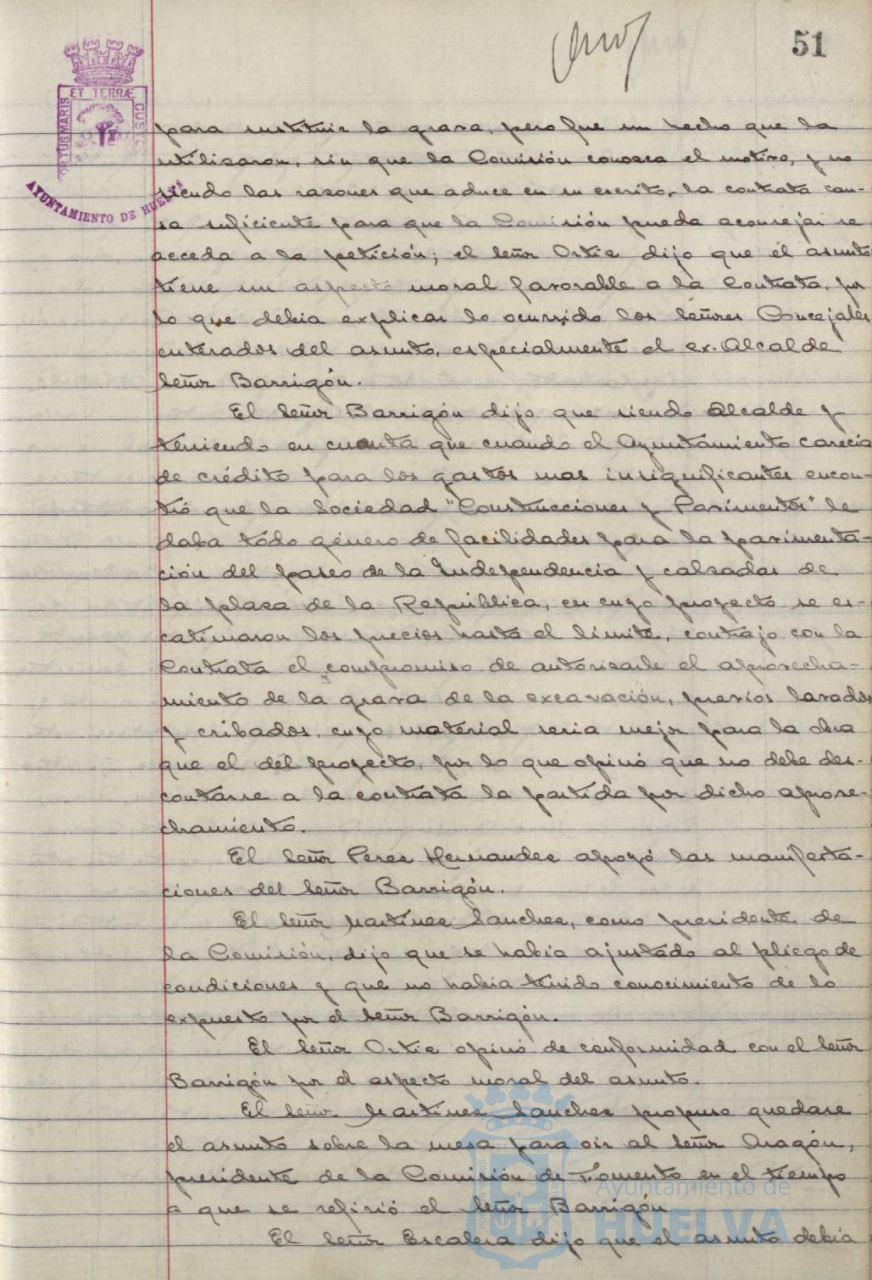 51
PORTUS MARIS ET TERRÆ CUSTODIA
AYUNTAMIENTO DE HUELVA
para sustituir la grava, pero fue un hecho que la
utilizaron, sin que la Comisión conozca el motivo, y no
siendo las razones que aduce en su escrito, la contrata cau-
sa suficiente para que la Comisión pueda aconsejar se
acceda a la petición; el señor Ortiz dijo que el asunto
tiene un aspecto moral favorable a la Contrata, por
lo que debia explicar lo ocurrido los señores Concejales
enterados del asunto, especialmente el ex-Alcalde
señor Barrigón.
El señor Barrigón dijo que siendo Alcalde y
teniendo en cuenta que cuando el Ayuntamiento carecia
de crédito para los gastos mas insignificantes encon-
tró que la Sociedad "Construcciones y Pavimentos" le
daba todo género de facilidades para la pavimenta-
ción del paseo de la Independencia y calzadas de
la plaza de la República, en cuyo proyecto se es-
catimaron los precios hasta el límite, contrajo con la
Contrata el compromiso de autorizarle el aprovecha-
miento de la grava de la excavación, previos lavados
y cribados, cuyo material seria mejor para la obra
que el del proyecto, por lo que opinó que no debe des-
contarse a la contrata la partida por dicho aprove-
chamiento.
El señor Perez Hernandez apoyó las manifesta-
ciones del señor Barrigón.
El señor Martinez Sanchez, como presidente de
la Comisión, dijo que se habia ajustado al pliego de
condiciones y que no habia tenido conocimiento de lo
expuesto por el señor Barrigón.
El señor Ortiz opinó de conformidad con el señor
Barrigón por el aspecto moral del asunto.
El señor Martinez Sanchez propuso quedase
el asunto sobre la mesa para oir al señor Aragón,
presidente de la Comisión de Fomento en el tiempo
a que se refirió el señor Barrigón
El señor Escalera dijo que el asunto debia
Ayuntamiento de
HUELVA